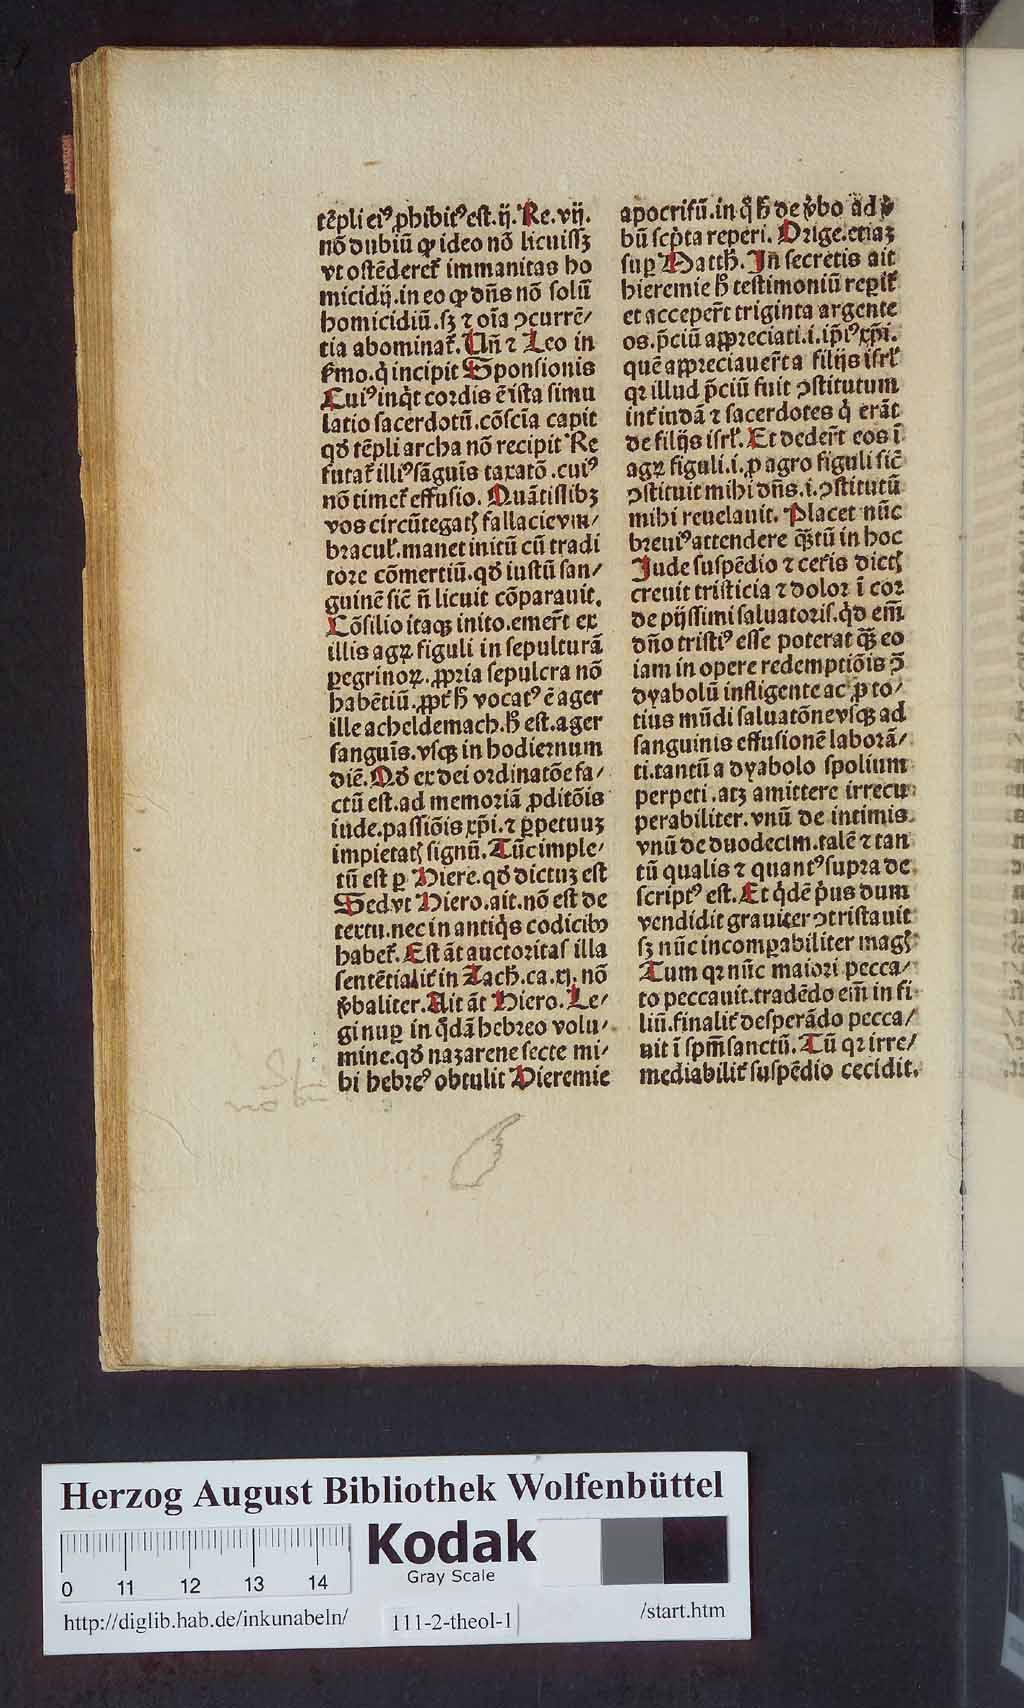 tēpli eiꝰ ꝓhibitꝰ est. ij. Re. vij.
nō dubiū ꝙ ideo nō licuissꝫ
vt ostēderet̄ immanitas ho
micidij. in eo ꝙ dn̄s nō solū
homicidiū. sꝫ ⁊ oīa ↄcurrē⸗
tia abominat̄. Un̄ ⁊ Leo in
s̄mo. q̇ incipit Sponsionis
Cuiꝰ inq̇t cordis ē ista simu
latio sacerdotū. cōscīa capit
qḋ tēpli archa nō recipit Re
futat̄ illiꝰ sāguīs taxatō. cuiꝰ
nō timet̄ effusio. Quātislibꝫ
vos circūtegatꝭ fallacie vm⸗
bracul̄. manet initū cū tradi
tore cōmertiū. qḋ iustū san⸗
guinē sic̄ n̄ licuit cōparauit.
Cōsilio itaqꝫ inito. emer̄t ex
illis agꝝ figuli in sepulturā
ꝑegrinoꝝ. ꝓpria sepulcra nō
habētiū. ꝓpt̄ h̄ vocatꝰ ē ager
ille acheldemach. h̄ est. ager
sanguīs. vsqꝫ in hodiernum
diē. Qḋ ex dei ordinatōe fa⸗
ctū est. ad memoriā ꝓditōis
iude. passiōis xp̄i. ⁊ ꝑpetuuꝫ
impietatꝭ signū. Tūc imple⸗
tū est ꝑ Hiere. qḋ dictuꝫ est
Sed vt Hiero. ait. nō est de
textu. nec in antiq̇s codicibꝰ
habet̄. Est āt auctoritas illa
sentētialit̄ in Zach. ca. xj. nō
v̇baliter. Ait āt Hiero. Le⸗
gi nuꝑ in q̇dā hebreo volu⸗
mine. qḋ nazarene secte mi⸗
hi hebreꝰ obtulit Hieremie
apocrifū. in q̇ h̄ de v̇bo ad v̇
bū scp̄ta reperi. Orige. etiaꝫ
suꝑ Matth. In̄ secretis ait
hieremie h̄ testimoniū reꝑit̄
et acceper̄t triginta argente
os. p̄ciū appreciati. i. ip̄iꝰ xp̄i.
quē appreciauer̄t a filijs isrl̄
qꝛ illud p̄ciū fuit ↄstitutum
int̄ iudā ⁊ sacerdotes q̇ erāt
de filijs isrl̄. Et deder̄t eos ī
agꝝ figuli. i. ꝓ agro figuli sic̄
ↄstituit mihi dn̄s. i. ↄstitutū
mihi reuelauit. Placet nūc
breuiꝰ attendere qꝫ̄tū in hoc
Jude suspēdio ⁊ cet̄is dictꝭ
creuit tristicia ⁊ dolor ī cor
de pijssimi saluatoris. q̇d em̄
dn̄o tristiꝰ esse poterat qꝫ̄ eo
iam in opere redemptiōis ↄ̄
dyabolū infligente ac ꝓ to⸗
tius mūdi saluatōne vsqꝫ ad
sanguinis effusionē laborā⸗
ti. tantū a dyabolo spolium
perpeti. atꝫ amittere irrecu
perabiliter. vnū de intimis.
vnū de duodecim. talē ⁊ tan
tū qualis ⁊ quantꝰ supra de
scriptꝰ est. Et q̇dē ṗus dum
vendidit grauiter ↄtristauit
sꝫ nūc incomꝑabiliter magꝭ
Tum qꝛ nūc maiori pecca⸗
to peccauit. tradēdo em̄ in fi
liū. finalit̄ desperādo pecca⸗
uit ī spm̄sanctū. Tū qꝛ irre⸗
mediabilit̄ suspēdio cecidit.
Herzog August Bibliothek Wolfenbüttel
Kodak
Gray Scale
0 11 12 13 14
http://diglib.hab.de/inkunabeln/ 111-2-theol-1 /start.htm